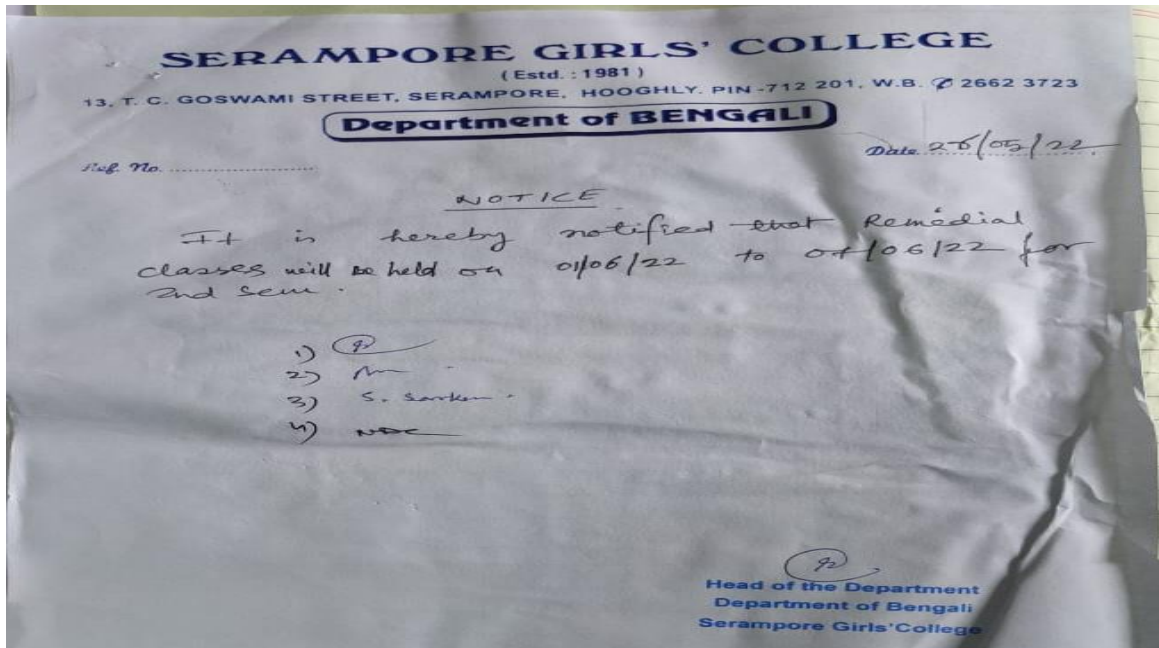 SERAMPORE GIRLS' COLLEGE
(Estd. : 1981)
13, T. C. GOSWAMI STREET, SERAMPORE, HOOGHLY. PIN -712 201, W.B. ✆ 2662 3723
Department of BENGALI
Ref. No. .......................... Date
NOTICE
It is hereby notified that Remedial
classes will be held on 01/06/22 to 07/06/22 for
2nd Sem.
1)
2)
3) S. Sarkar.
4) NDC
Head of the Department
Department of Bengali
Serampore Girls'College